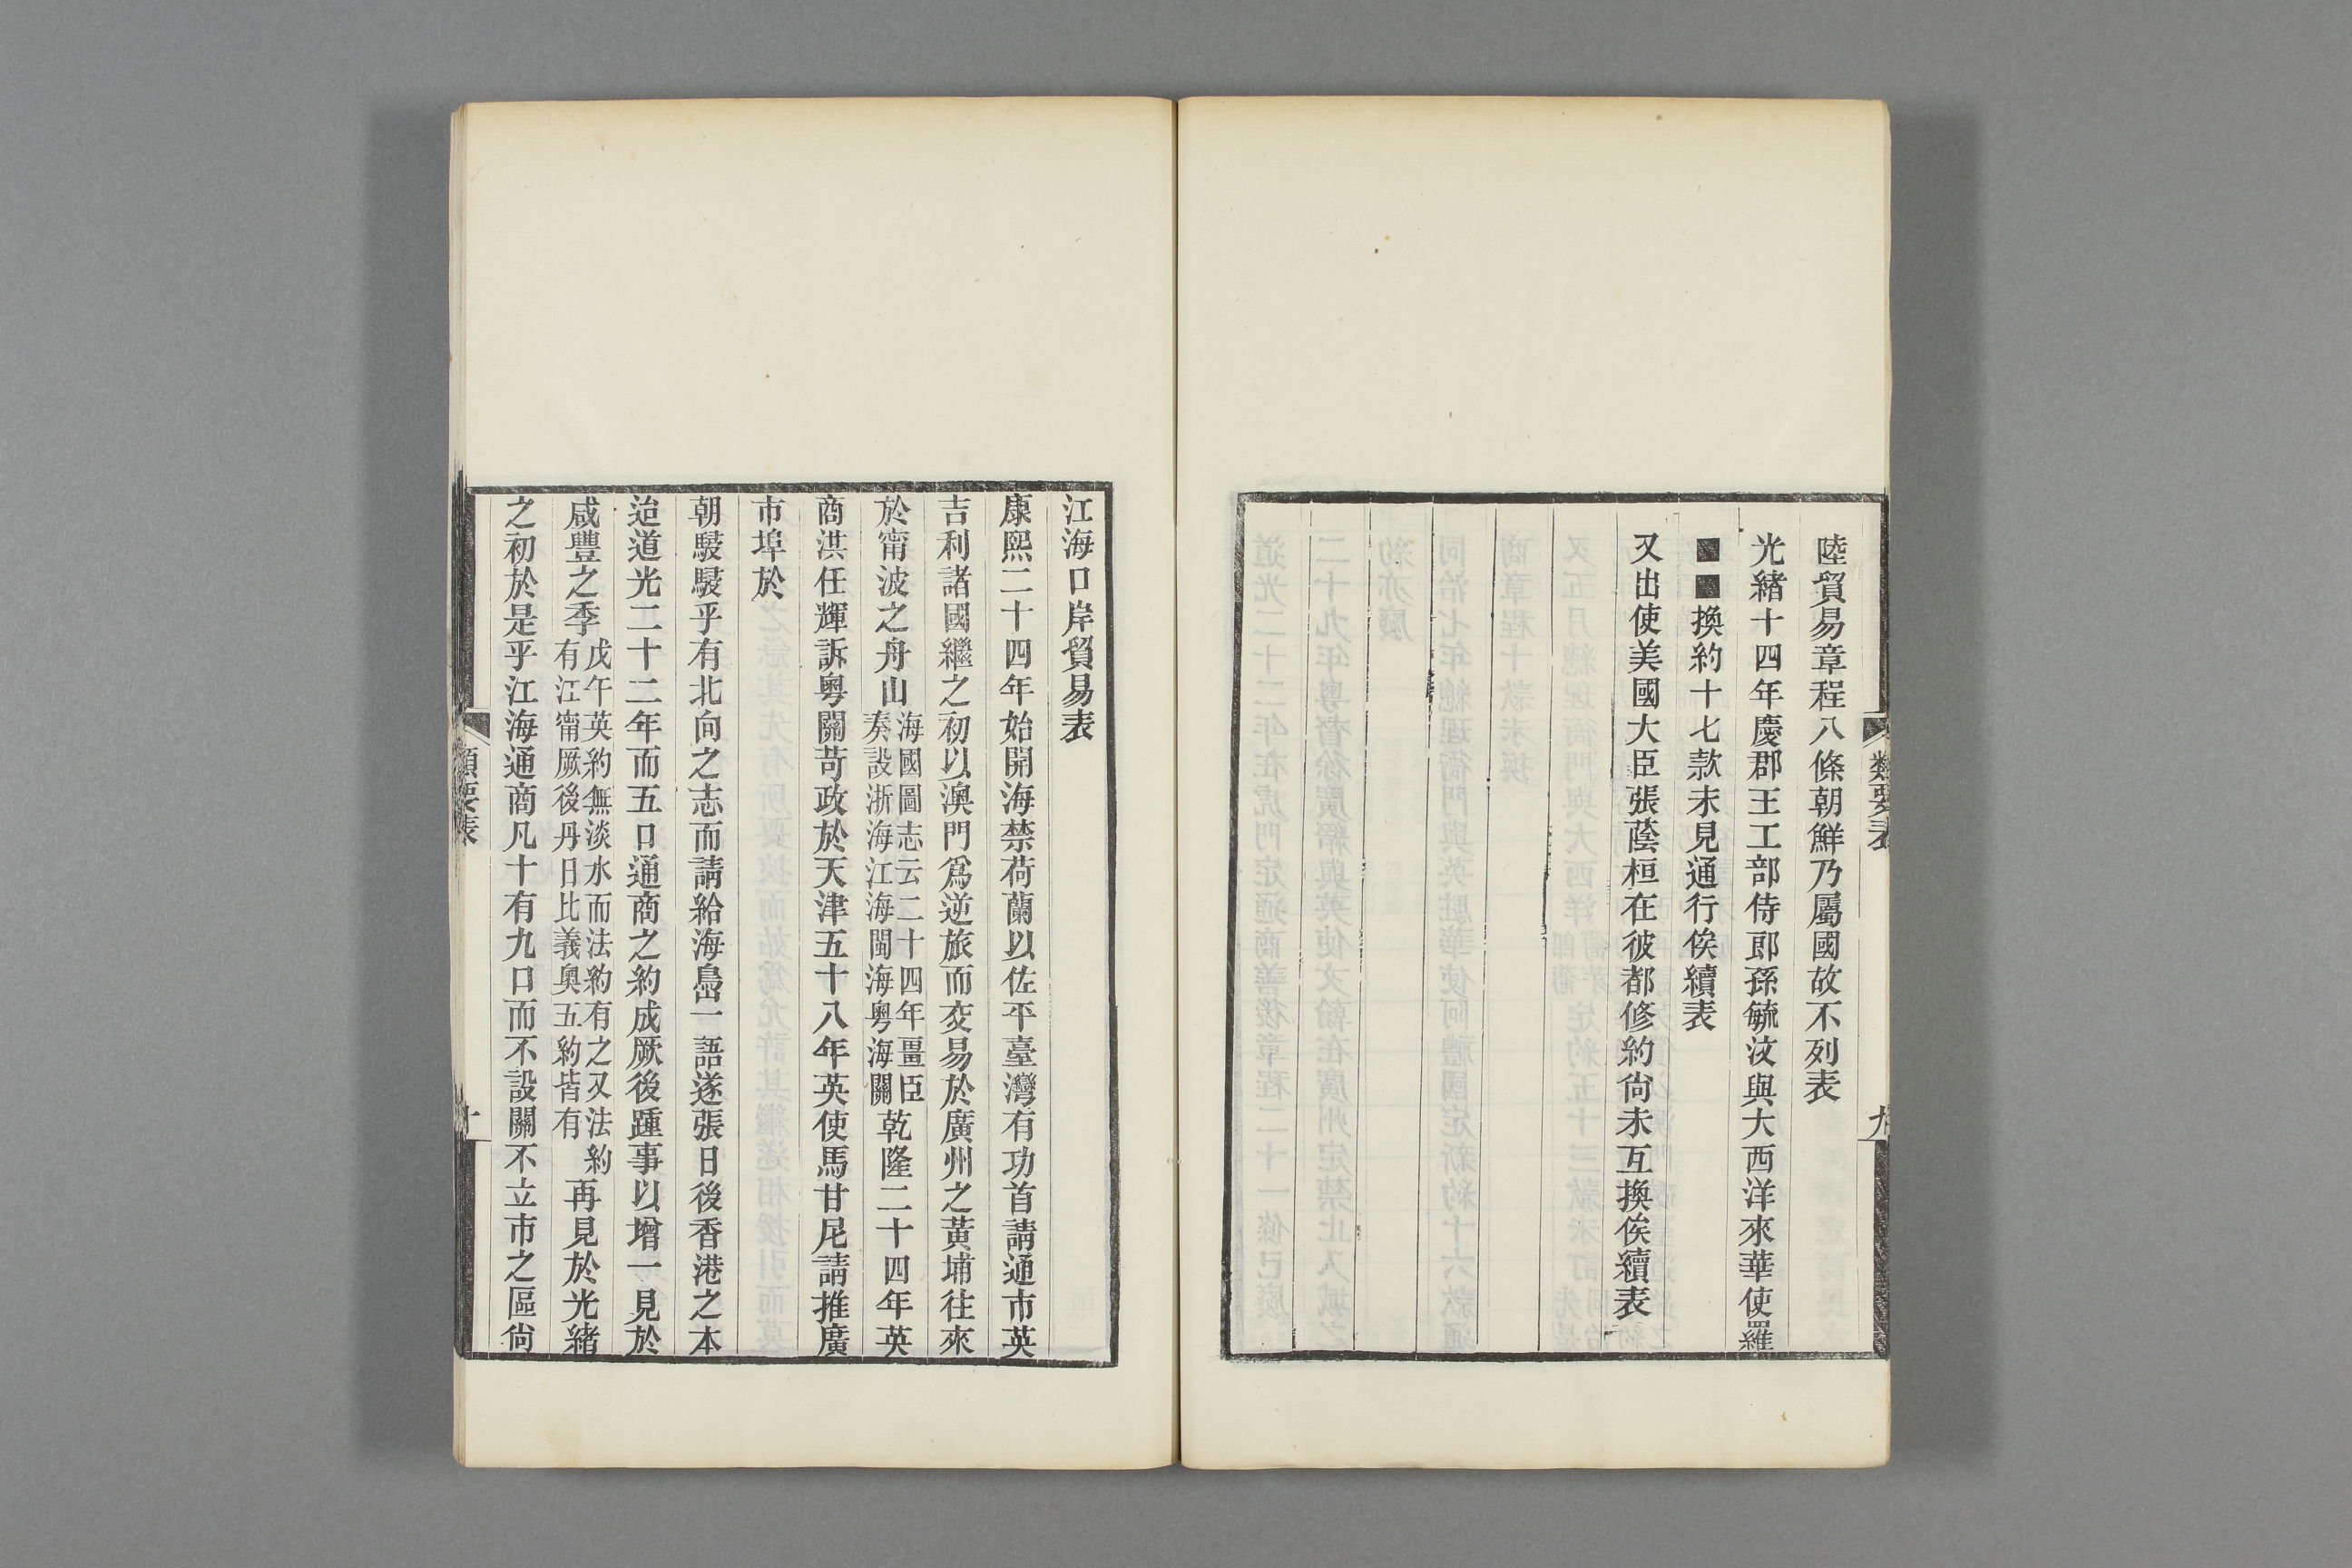 類要表
九
陸貿易章程八條朝鮮乃屬國故不列表
光緒十四年慶郡王工部侍郎孫毓汶與大西洋來華使羅
■■換約十七款未見通行俟續表
又出使美國大臣張蔭桓在彼都修約尙未互換俟續表
江海口岸貿易表
康熙二十四年始開海禁荷蘭以佐平臺灣有功首請通市英
吉利諸國繼之初以澳門爲逆旅而交易於廣州之黃埔往來
於甯波之舟山海國圖志云二十四年畺臣奏設浙海江海閩海粵海關乾隆二十四年英
商洪任輝訴粵關苛政於天津五十八年英使馬甘尼請推廣
市埠於
朝駸駸乎有北向之志而請給海嶴一語遂張日後香港之本
迨道光二十二年而五口通商之約成厥後踵事以增一見於
咸豐之季戊午英約無淡水而法約有之又法約有江甯厥後丹日比義奧五約皆有再見於光緒
之初於是乎江海通商凡十有九口而不設關不立市之區尙
類要表
十